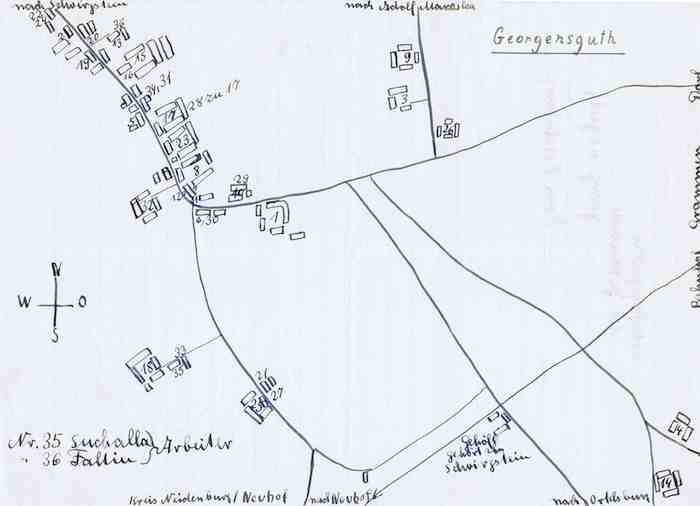 nach Schwirgstein
nach Adolf
Georgensguth
22
24
21
20
36
19
13
15
16
34,31
17
28 zu 17
23
8
32
12
30
29
10
1
9
3
N
W O
S
18
33
35
26
27
25
Nr. 35 Suchalla } Arbeiter
" 36 Fallin
Gehöft
gehört zu
Schwirgstein
14
19
Kreis Neidenburg / Neuhof
nach Neuhof
nach Ortelsburg
Bahnhof Gr.